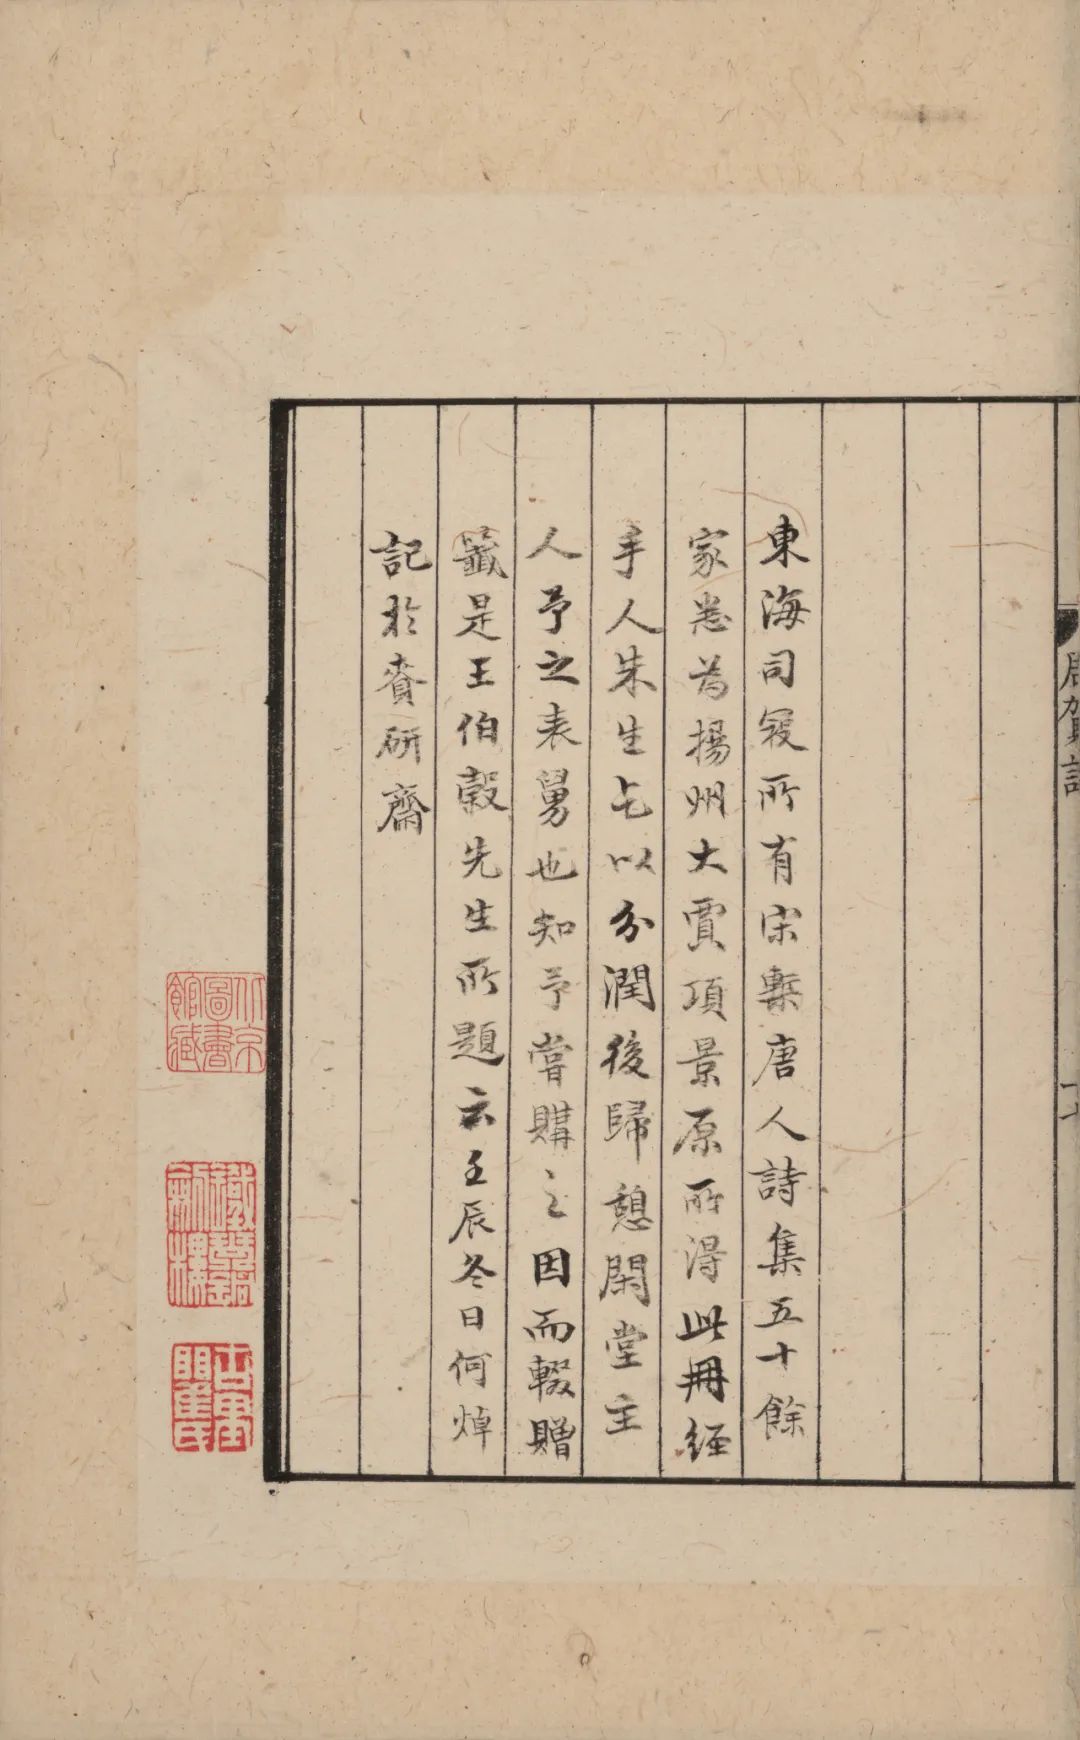 東海司寇所有宋槧唐人詩集五十餘
家悉為揚州大賈項景原所得此冊經
手人朱生乞以分潤後歸憩閑堂主
人予之表舅也知予嘗購之因而輟贈
籤是王伯穀先生所題云壬辰冬日何焯
記於賚研齋
周賀詩
北京圖書館藏
鐵琴銅劍樓